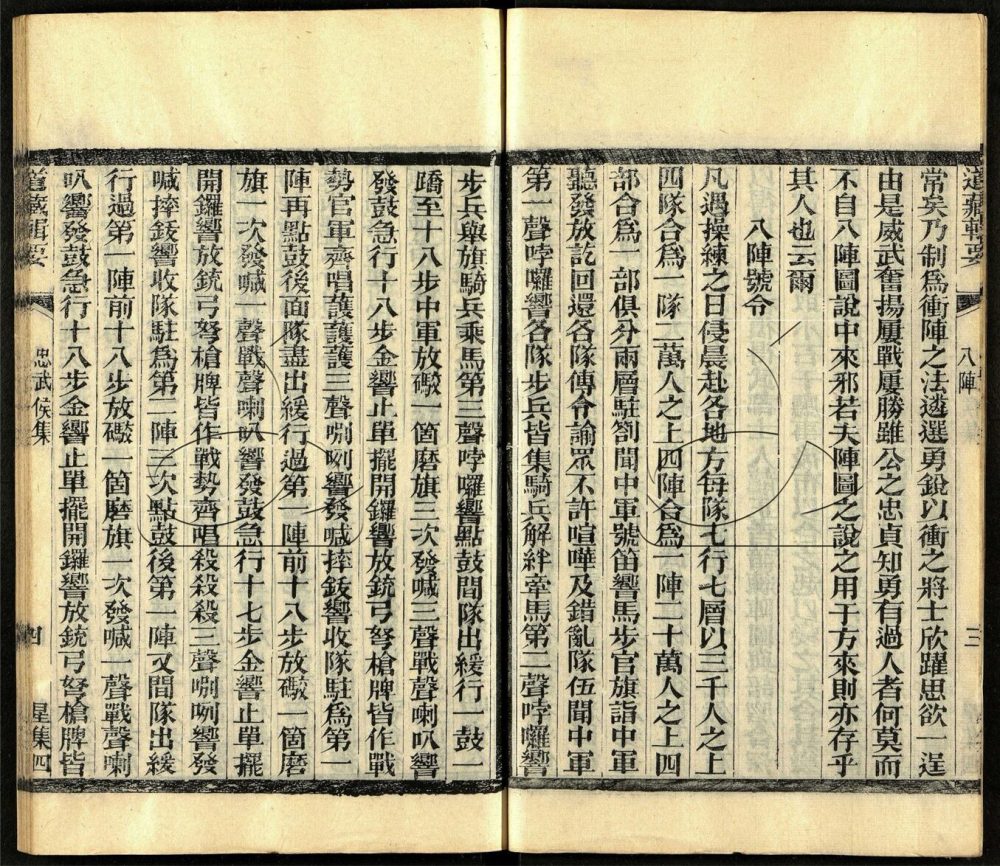 道藏輯要
八陣
三
常矣乃制爲衝陣之法遴選勇銳以衝之將士欣躍思欲一逞
由是威武奮揚屢戰屢勝雖公之忠貞知勇有過人者何莫而
不自八陣圖說中來邪若夫陣圖之說之用于方來則亦存乎
其人也云爾
八陣號令
凡遇操練之日侵晨赴各地方每隊七行七層以三千人之上
四隊合爲一隊二萬人之上四陣合爲一陣二十萬人之上四
部合爲一部俱分兩層駐劄聞中軍號笛響馬步官旗詣中軍
聽發放訖回還各隊傳令諭眾不許喧嘩及錯亂隊伍聞中軍
第一聲哱囉響各隊步兵皆集騎兵解絆牽馬第二聲哱囉響
步兵與旗騎兵乘馬第三聲哱囉響點鼓間隊出緩行一鼓一
蹻至十八步中軍放礮一箇磨旗三次發喊三聲戰聲喇叭響
發鼓急行十八步金響止單擺開鑼響放銃弓弩槍牌皆作戰
勢官軍齊唱護護護三聲喇咧響發喊摔鈸響收隊駐爲第一
陣再點鼓後面隊盡出緩行過第一陣前十八步放礮一箇磨
旗一次發喊一聲戰聲喇叭響發鼓急行十七步金響止單擺
開鑼響放銃弓弩槍牌皆作戰勢齊唱殺殺殺三聲喇咧響發
喊摔鈸響收隊駐爲第二陣三次點鼓後第一陣又間隊出緩
行過第一陣前十八步放礮一箇磨旗一次發喊一聲戰聲喇
叭響發鼓急行十八步金響止單擺開鑼響放銃弓弩槍牌皆
道藏輯要
忠武侯集
四
星集四